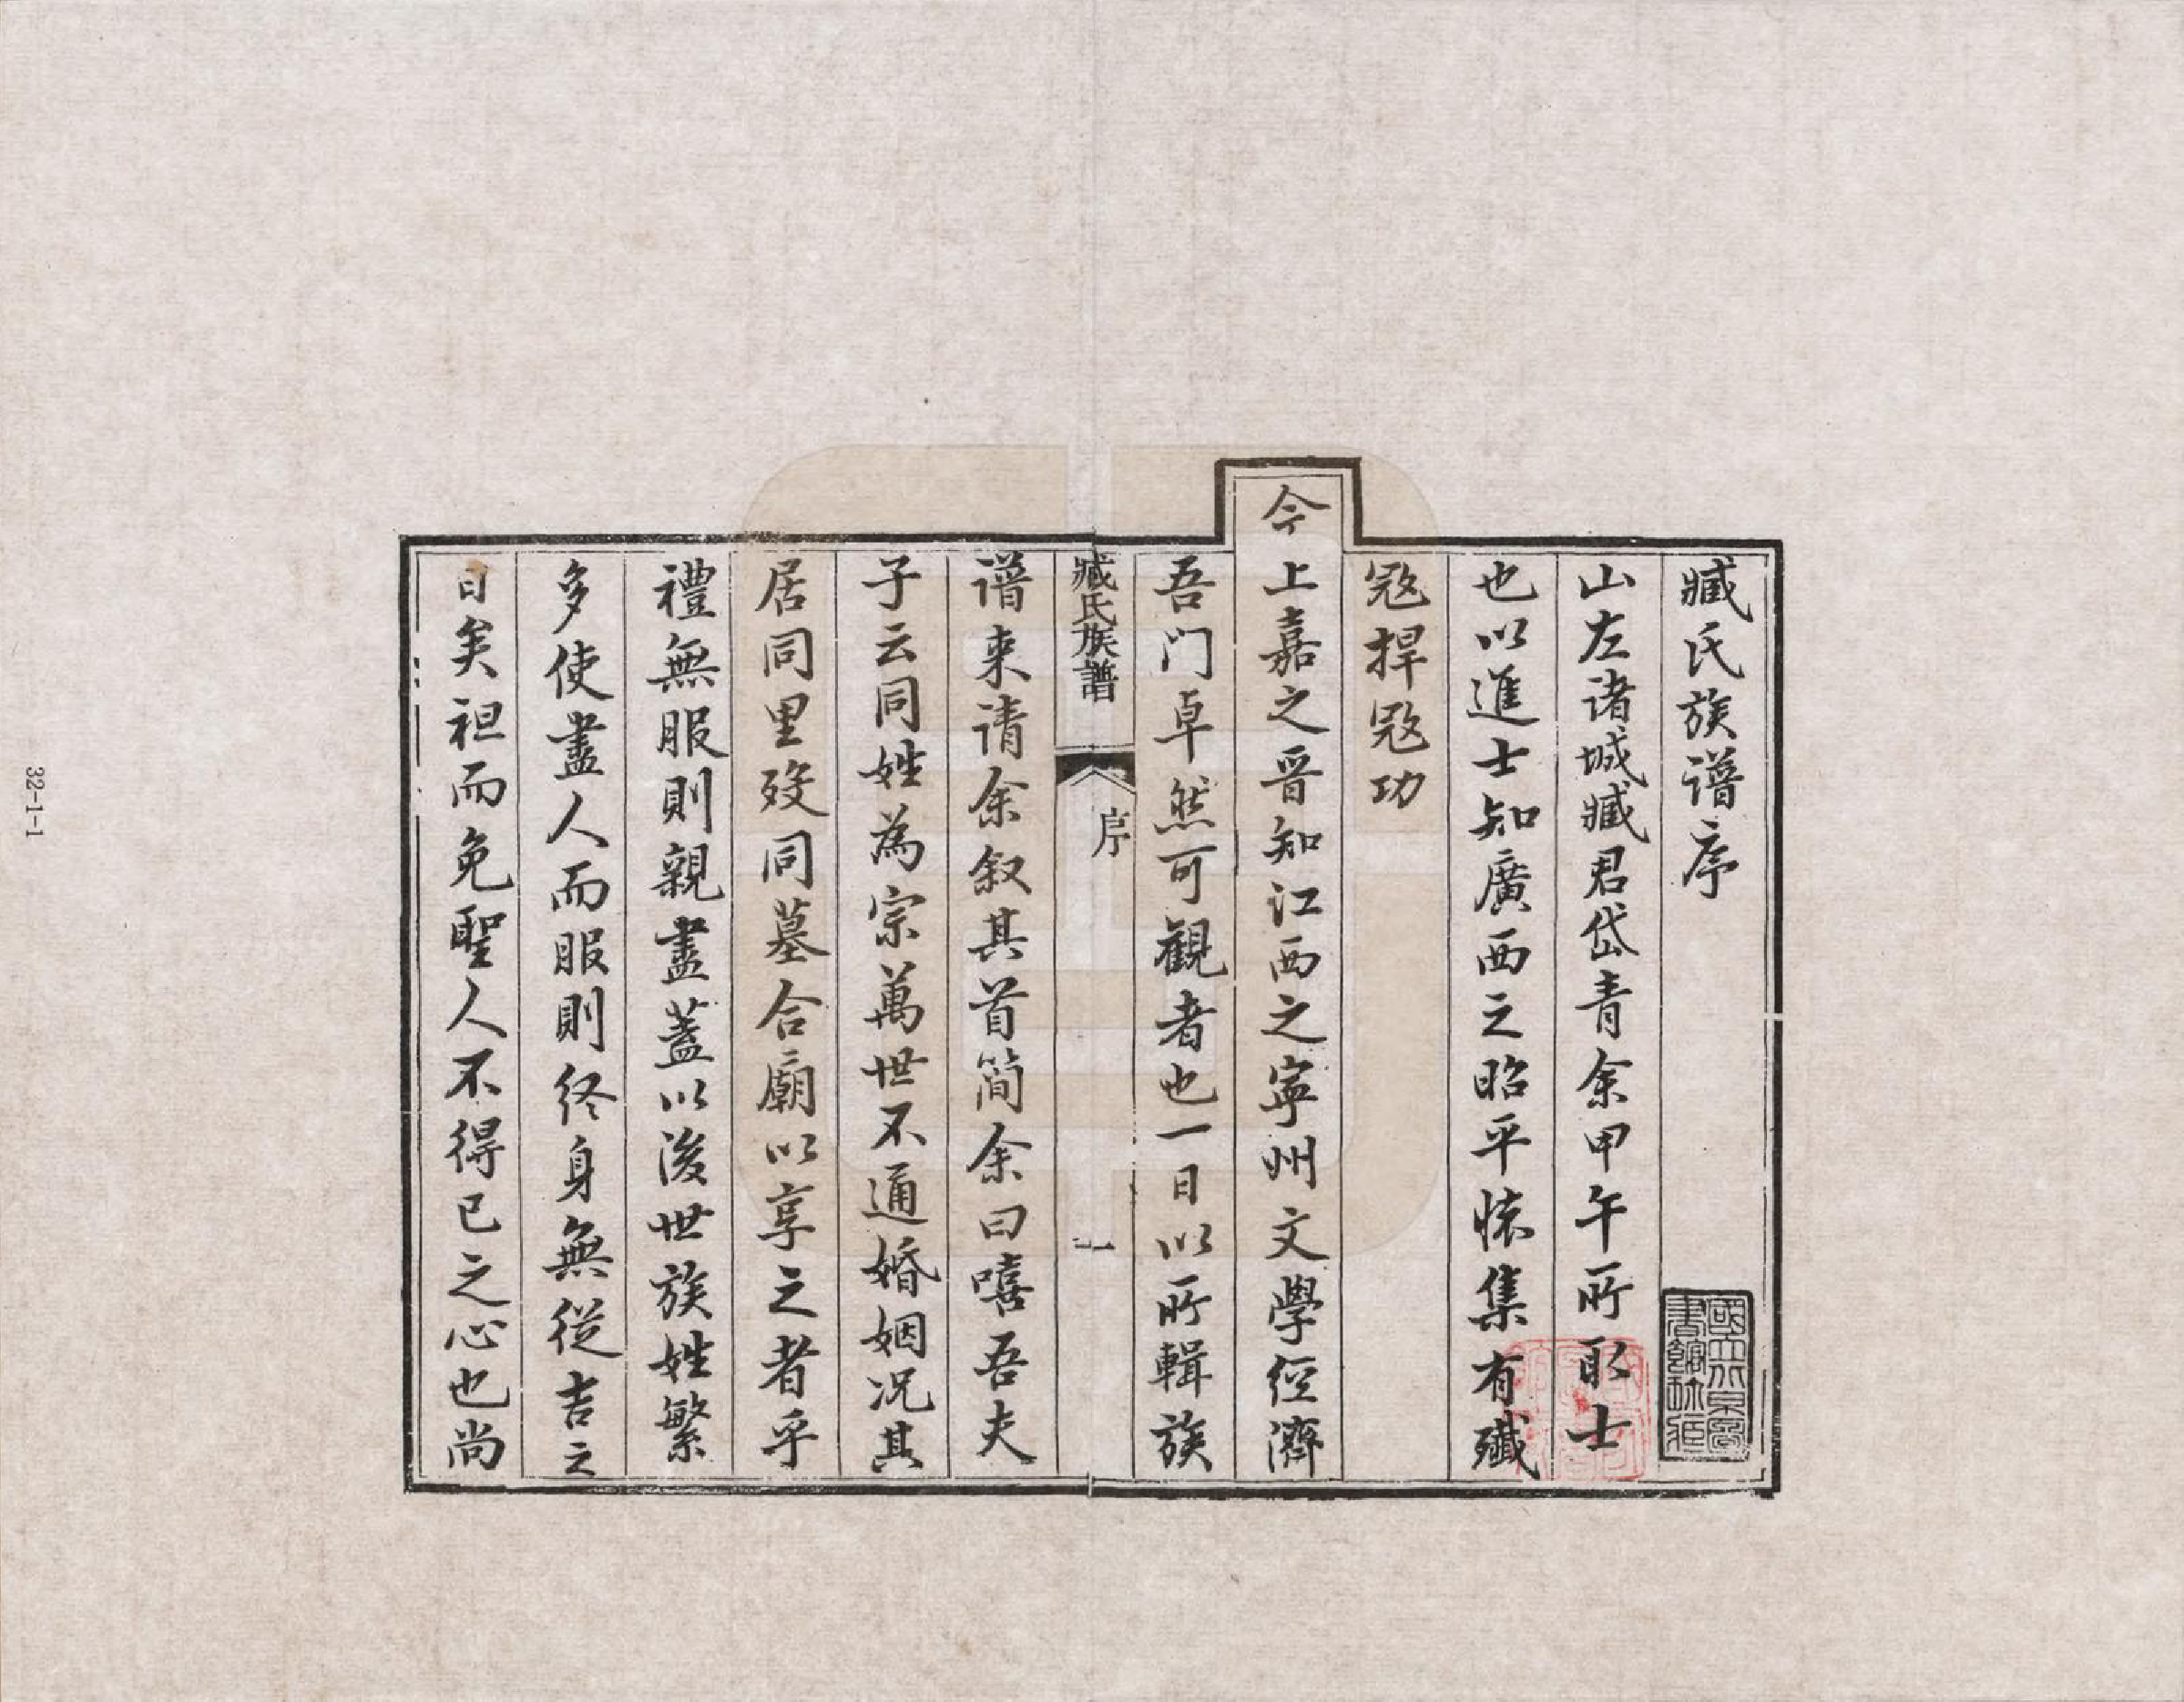 臧氏族谱序
山左诸城臧君岱青余甲午所取士
也以進士知廣西之昭平懷集有殲
寇捍寇功
今上嘉之晉知江西之寧州文學經濟
吾门卓然可觀者也一日以所輯族
臧氏族譜
序
一
谱来请余叙其首简余曰嘻吾夫
子云同姓為宗萬世不通婚姻况其
居同里殁同墓合廟以享之者乎
禮無服則親盡蓋以後世族姓繁
多使盡人而服則终身無從吉之
日矣袒而免聖人不得已之心也尚
國立北京圖
書館珍藏
32-1-1